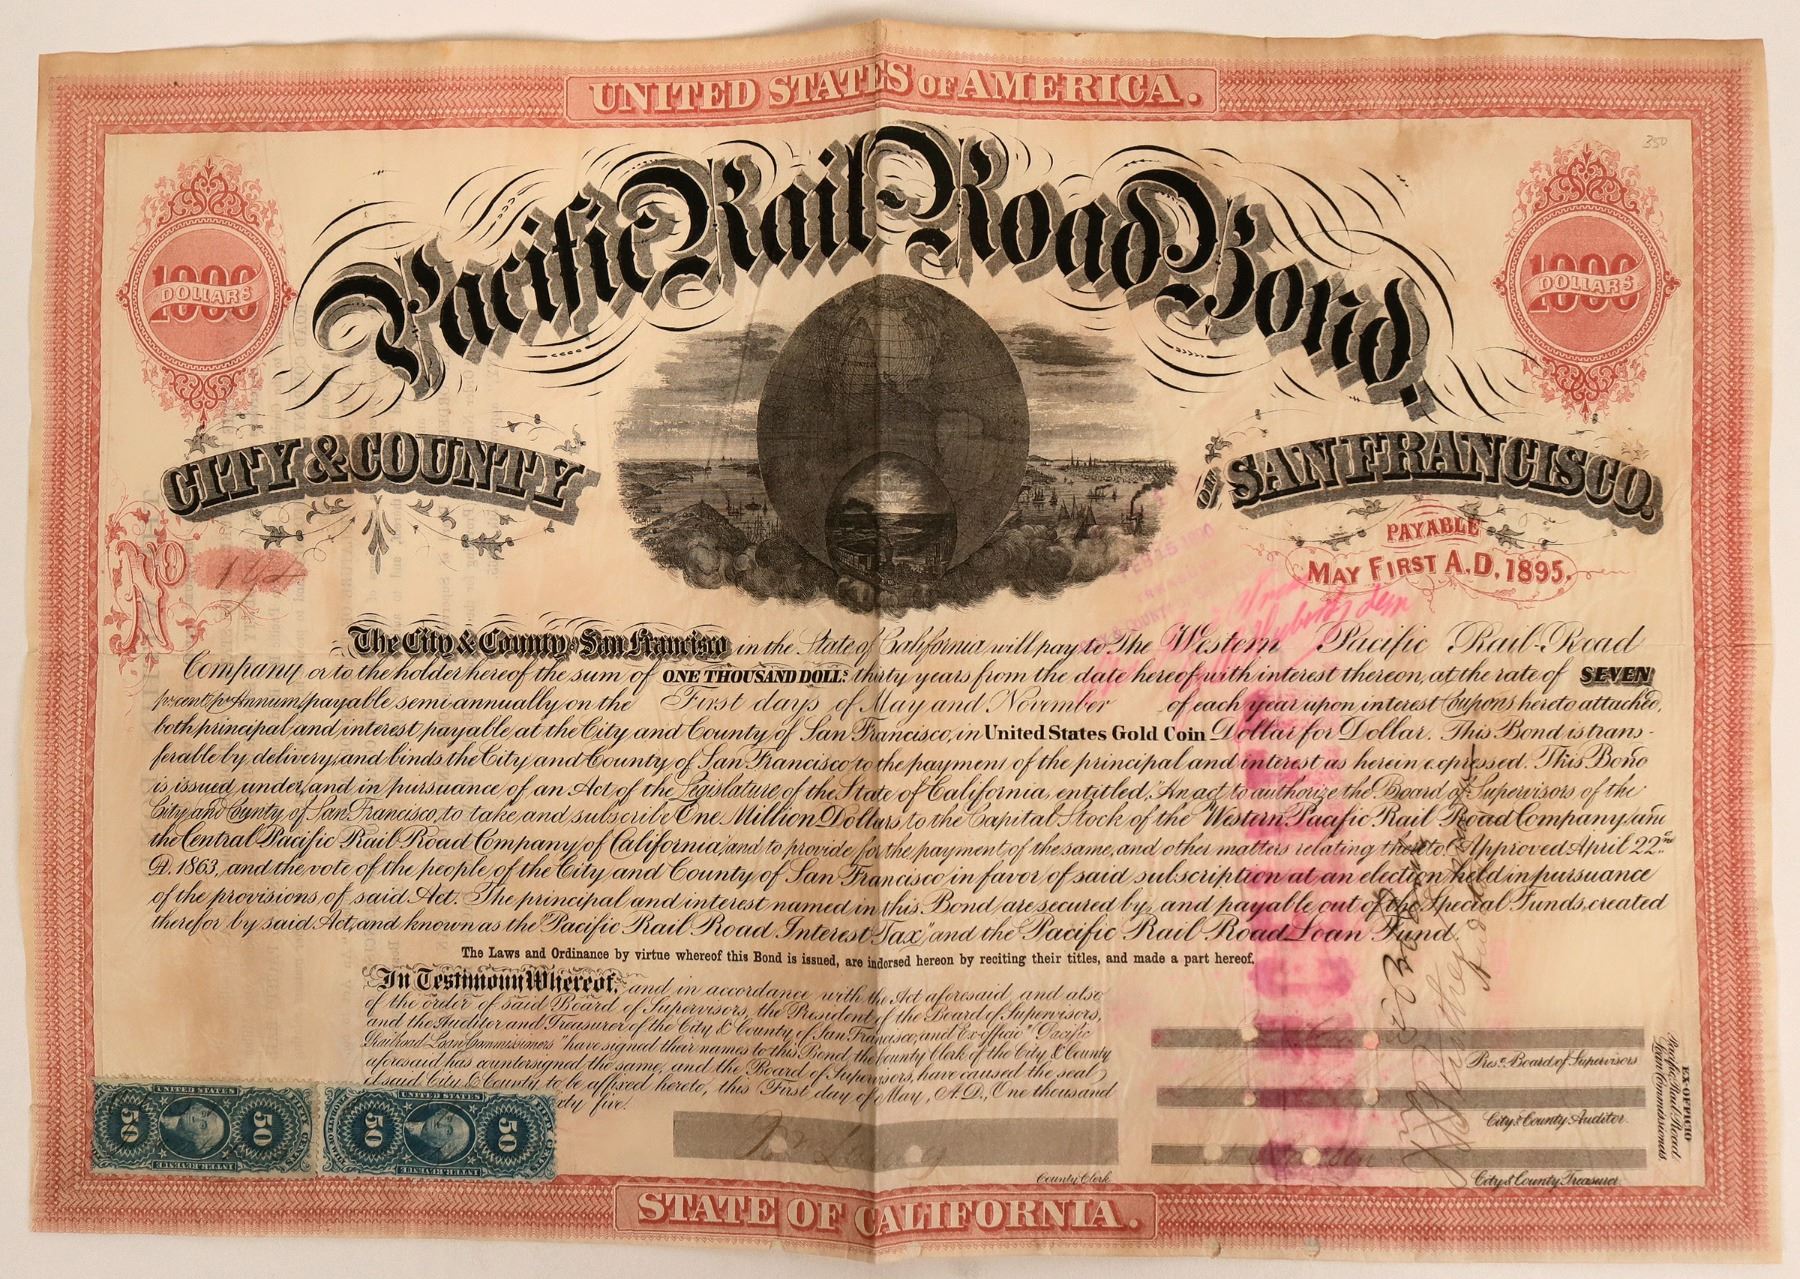 350
UNITED STATES OF AMERICA.
1000 DOLLARS
1000 DOLLARS
Pacific Rail-Road Bond,
CITY & COUNTY
OF SAN FRANCISCO.
PAYABLE
MAY FIRST A.D. 1895.
No
The City & County of San Francisco in the State of California will pay to The Western Pacific Rail-Road
Company or to the holder hereof the sum of ONE THOUSAND DOLLS. thirty years from the date hereof with interest thereon, at the rate of SEVEN
pr cent pr Annum, payable semi annually on the First days of May and November of each year upon interest Coupons hereto attached,
both principal and interest payable at the City and County of San Francisco, in United States Gold Coin Dollar for Dollar. This Bond is trans-
ferable by delivery, and binds the City and County of San Francisco to the payment of the principal and interest as herein expressed. This Bond
is issued under, and in pursuance of an Act of the Legislature of the State of California, entitled, "An act to authorize the Board of Supervisors of the
City and County of San Francisco, to take and subscribe One Million Dollars to the Capital Stock of the Western Pacific Rail Road Company and
the Central Pacific Rail Road Company of California and to provide for the payment of the same, and other matters relating thereto." Approved April 22nd
A.D. 1863, and the vote of the people of the City and County of San Francisco in favor of said subscription at an election held in pursuance
of the provisions of said Act. The principal and interest named in this Bond are secured by, and payable out of the Special Funds, created
therefor by said Act, and known as the "Pacific Rail Road Interest Tax" and the "Pacific Rail Road Loan Fund.
The Laws and Ordinance by virtue whereof this Bond is issued, are indorsed hereon by reciting their titles, and made a part hereof.
In Testimony Whereof, and in accordance with the Act aforesaid, and also
of the order of said Board of Supervisors, the President of the Board of Supervisors,
and the Auditor and Treasurer of the City & County of San Francisco, and Ex-officio "Pacific
Railroad Loan Commissioners" have signed their names to this Bond, the County Clerk of the City & County
aforesaid has countersigned the same, and the Board of Supervisors, have caused the seal
of said City & County to be affixed hereto, this First day of May, A.D., One thousand
xty five.
Prest. Board of Supervisors
City & County Auditor.
City & County Treasurer
EX-OFFICIO
Pacific Rail Road
Loan Commissioners.
County Clerk
UNITED STATES
50 50
INTER. REVENUE
UNITED STATES
50 50
INTER. REVENUE
STATE OF CALIFORNIA.